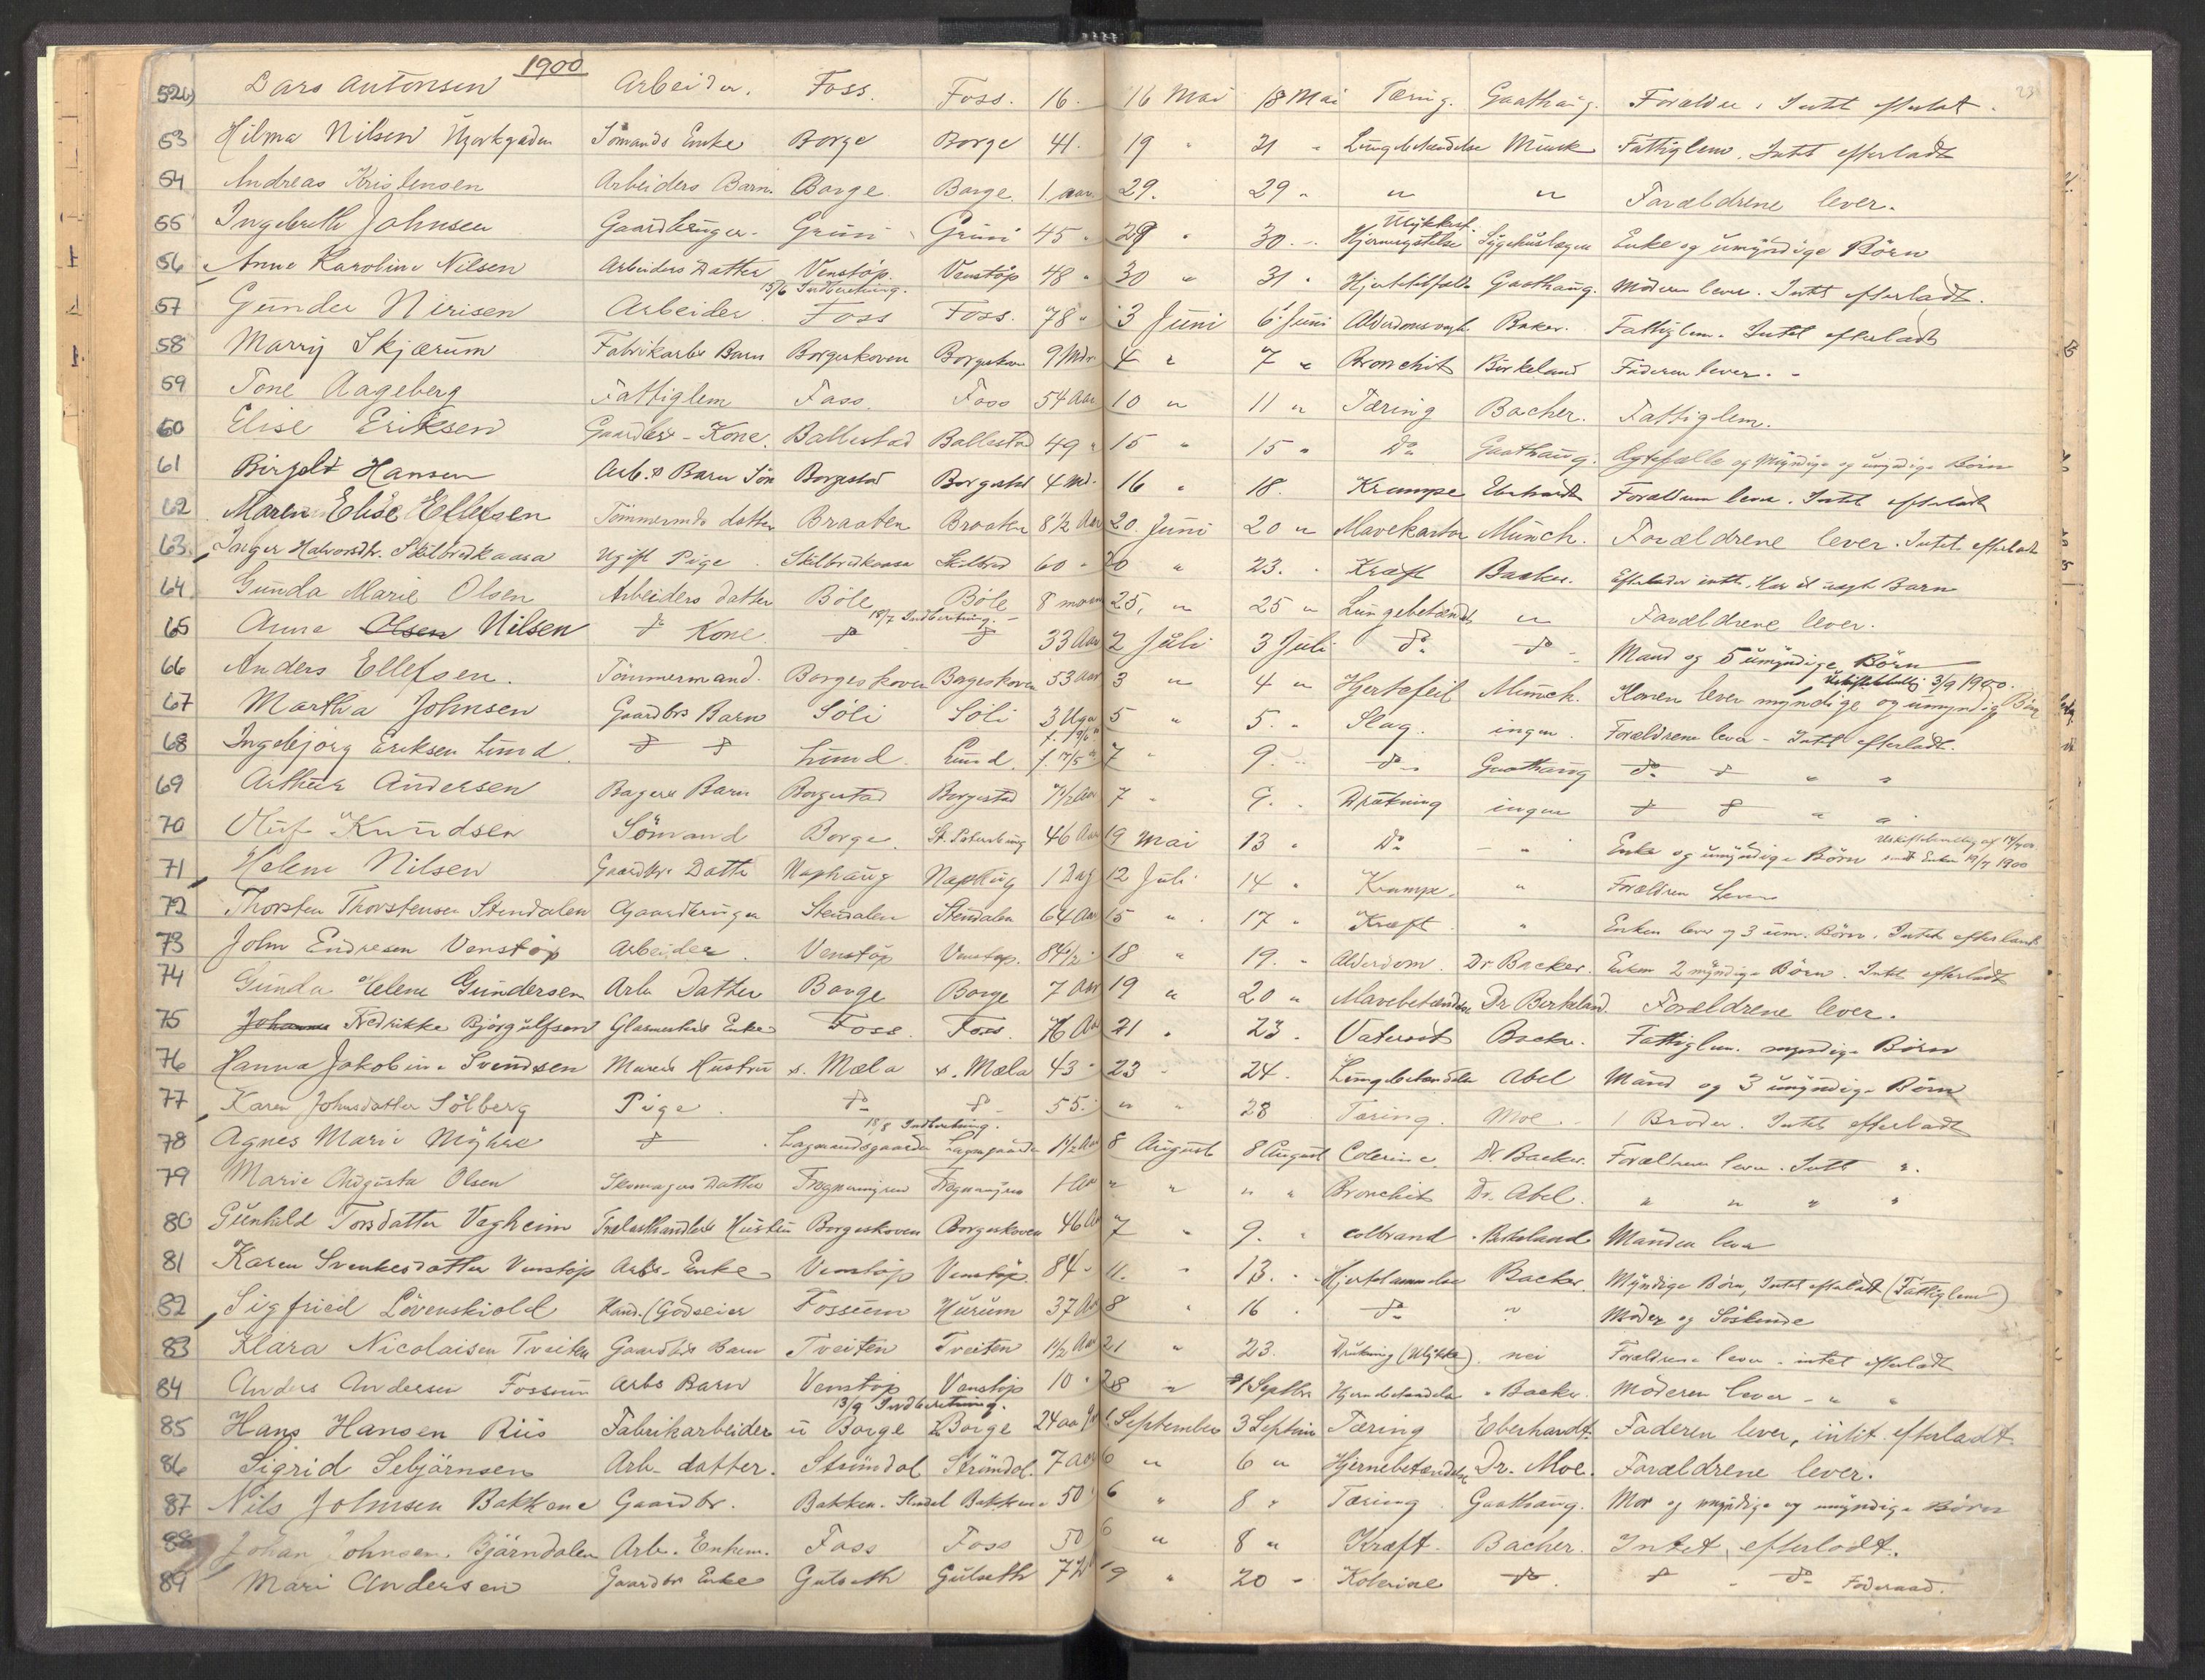 1900
23
52 Lars Antonsen Arbeider. Foss. Foss. 16. 16 Mai 18 Mai Tæring. Gaathaug. Forældre. Intet efterladt.
53 Hilma Nilsen Sömands Enke Borge Borge 41. 19 " 21 " Lungebetændelse Münch Fattiglem. Intet efterladt
54 Andreas Kristensen Arbeiders Barn. Borge Borge. 1. aar. 29. 29 " " " Forældrene lever.
55 Ingebreth Johnsen Gaardbruger. Grini Grini 45 " 29 " 30. " Ulykkest. Hjernerystelse Sygehuslægen Enke og umyndige Börn
56 Anne Karoline Nilsen Arbeiders Datter Venstöp. Venstöp 48 " 30 " 31 " Gaathaug. Moderen lever. Intet efterladt.
15/6 Indberetning.
57 Gunder Nirisen Arbeider Foss Foss. 78 " 3 Juni 6 Juni Backer. Fattiglem. Intet efterladt
58 Marry Skjærum Fabrikarbs Barn Borgeskoven Borgeskoven 9 Mdr 4 " 7 " Bronchit Birkeland Faderen lever. "
59 Tone Aageberg Fattiglem Foss. Foss 54 Aar 10 " 11 " Tæring Bacher. Fattiglem.
60 Elise Eriksen Gaardbrs Kone. Ballestad Ballestad 49 " 15 " 15 " Do Gaathaug. Ægtefælle og Myndige og umyndige Börn
61 Birgelt Hansen Arb.s Barn Sön Borgestad Borgestad 4 Md. 16 " 18. Krampe Eberhardt Forældrene lever. Intet efterladt
62 Maren Elise Ellefsen Tömmermds datter Braaten Braaten 8 1/2 Aar 20 Juni 20 " Mavekatar Münch. Forældrene lever. Intet efterladt
63. Inger Halvorsdtr. Skilbredkaasa Ugift Pige Skilbredkaasa Skilbred 60 " 20 " 23. " Kræft Backer. Efterlader intet. Har et Barn
64. Gunda Marie Olsen Arbeiders datter Böle Böle 8 25. " 25 " Lungebetændels " Forældrene lever.
18/7 Indberetning.
65 Anna Olsen Nilsen do Kone do do 33 Aar 2 Juli 3 Juli do do Mand og 5 umyndige Börn
66 Anders Ellefsen. Tömmermand. Borgeskoven Borgeskoven 53 Aar 3 " 4 " Hjertefeil Münch. Konen lever myndige og umyndige Börn 3/9 1900.
67 Martha Johnsen Gaardbrs Barn Söli Söli 3 Uger 5 " 5. " Slag. ingen. Forældrene lever - Intet efterladt.
68 Ingebjörg Eriksen Lund. do do Lund. Lund. 7 " 9. " do Gaathaug do do " "
69 Arthur Andersen Bagers Barn Borgestad Borgestad 7 1/2 Aar 7 " 9. " Drukning ingen do do " "
70 Oluf Knudsen Sömand Borge. St. Petersburg 46 Aar 19 Mai 13 " Do " Enke og umyndige Börn sendt Enken 19/7 1900
71 Helene Nilsen Gaardbrs Datter Naphaug Naphaug 1 Dag 12 Juli 14 " Krampe. " Forældren Lever
72 Thorsten Thorstensen Stendalen Gaardbruger Stendalen Stendalen 64 Aar 15 " 17 " Kræft " Enken lever og 3 um. Börn. Intet efterladt
73 John Endresen Venstöp Arbeider. Venstöp Venstöp. 84 1/2 " 18 " 19. " Alderdom. Dr Backer. Enken 2 myndige Börn. Intet efterladt
74 Gunda Helene Gundersen Arb. Datter Borge Borge 7 Aar 19 " 20 " Mavebetændelse Dr Berkeland. Forældrene lever.
75 Johanne Fredrikke Björgulfsen Glarmesters Enke Foss. Foss. 76 Aar 21 " 23. Vatersot Backer. Fattiglem. myndige Börn
76 Hanna Jakobine Svendsen Murers Hustru s. Mæla s. Mæla 43 " 23 24. Lungebetændelse Abel Mand og 3 umyndige Börn
77 Karen Johnsdatter Sölberg Pige. do do 55. " " 28 Tæring. Moe. 1 Broder. Intet efterladt
18/8 Indberetning.
78 Agnes Marie Myhre do Lagmandsgaarden 1 1/2 Aar 8 August 8 August Colerine. Dr. Backer. Forældrene lever. Intet ".
79 Marie Augusta Olsen Skomagers Datter 1 Aar " " " " Bronchit Dr. Abel. " " " "
80 Gunhild Torsdatter Vegheim Trælasthandlers Hustru Borgeskoven Borgeskoven 46 Aar 7 " 9. " colbrand Berkeland Manden lever
81 Karen Svenkesdatter Venstöp Arbs. Enke Venstöp Venstöp. 84 " 11. " 13. " Hjertelammelse Backer. Myndige Börn, Intet efterladt (Fattiglem)
82 Sigfried Lövenskiold Kand. (Godseier Fossum Hurum 37 Aar 8 " 16 " do " Moder og Söskende
83 Klara Nicolaisen Tveiten Gaardbrs Barn Tveiten Tveiten 1 1/2 Aar 21 " 23. Drukning (Ulykke). nei Forældrene lever. intet efterladt
84 Anders Andersen Fossum Arbs Barn Venstöp Venstöp 10 " 28 " 1 Septbr Hjernebetændelse " Backer. Moderen lever - " "
13/9 Indberetning.
85 Hans Hansen Riis Fabrikarbeider u Borge Borge 24 aar 1. September 3 Septemr Tæring Eberhardt. Faderen lever, intet efterladt
86 Sigrid Sebjörnsen Arb. datter. Strömdal Strömdal. 7 aar 6 " 6 " Hjernebetændelse Dr. Moe. Forældrene lever.
87 Nils Johnsen Bakkane Gaardbr. Bakken. Bakken. 50 6 " 8 " Tæring Gaathaug. Mor og myndige og umyndige Börn
88 Johan Johnsen. Bjärndalen Arb. Enkem. Foss Foss 50 6 " 8 " Kræft. Bacher. Intet efterladt.
89 Mari Andersen Gaardbr Enke Gulseth Gulseth 72 19 " 20 " Kolerine do. do - do Föderaad.